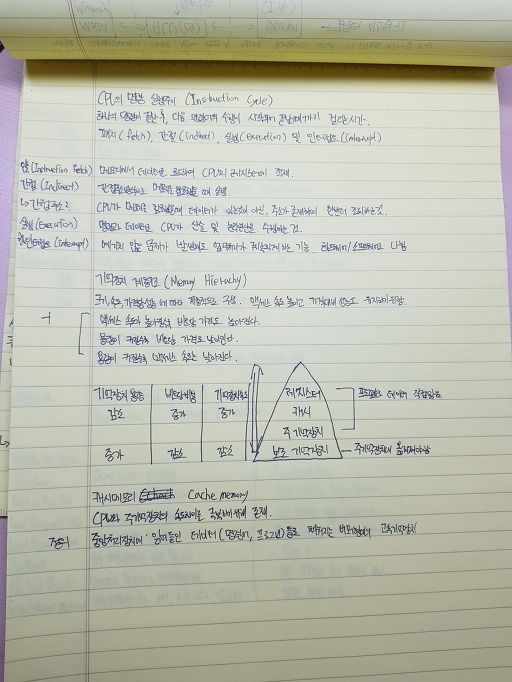 CPU의 명령 실행주기 (Instruction Cycle)
하나의 명령이 끝난 후, 다음 명령어의 수행이 시작되어 끝날때까지 걸린시간.
패치(fetch), 간접(indirect), 실행(Execution) 및 인터럽트(interrupt)
인출(Instruction Fetch) 메모리에서 데이터를 로드하여 CPU의 레지스터에 적재.
간접(Indirect) 메모리를 참조할 때 실행
↳ 간접주소? CPU가 메모리를 참조했을때 데이터가 있는것이 아닌, 주소가 존재하여 한번더 조회하는것.
실행(Execution) 명령과 데이터로 CPU가 산술 및 논리연산을 수행하는 것.
인터럽트(Interrupt) 예기치 않은 문제가 발생해도 업무처리가 계속되게 하는 기능. 하드웨어/소프트웨어로 나뉨
기억장치 계층구조 (Memory Hierachy)
크기, 속도, 가격당 성능에 따라 계층적으로 구성. 액세스 속도 높이고 유지하기위함
액세스 속도가 높아질수록 비트당 가격도 높아진다.
용량이 커질수록 비트당 가격은 낮아진다.
용량이 커질수록 액세스 속도는 낮아진다.
기억장치 용량 비트당비용 기억장치속도 레지스터 프로그램과 데이터 직접접근
감소 증가 증가 캐시
주기억장치
증가 감소 감소 보조 기억장치 주기억장치에 옮겨져야함
캐시메모리 Cache memory
CPU와 주기억장치의 속도차이를 극복하기위해 존재.
정의 중앙처리장치에 읽어들인 데이터(명령어, 프로그램)들로 채워지는 버퍼형태의 고속기억장치